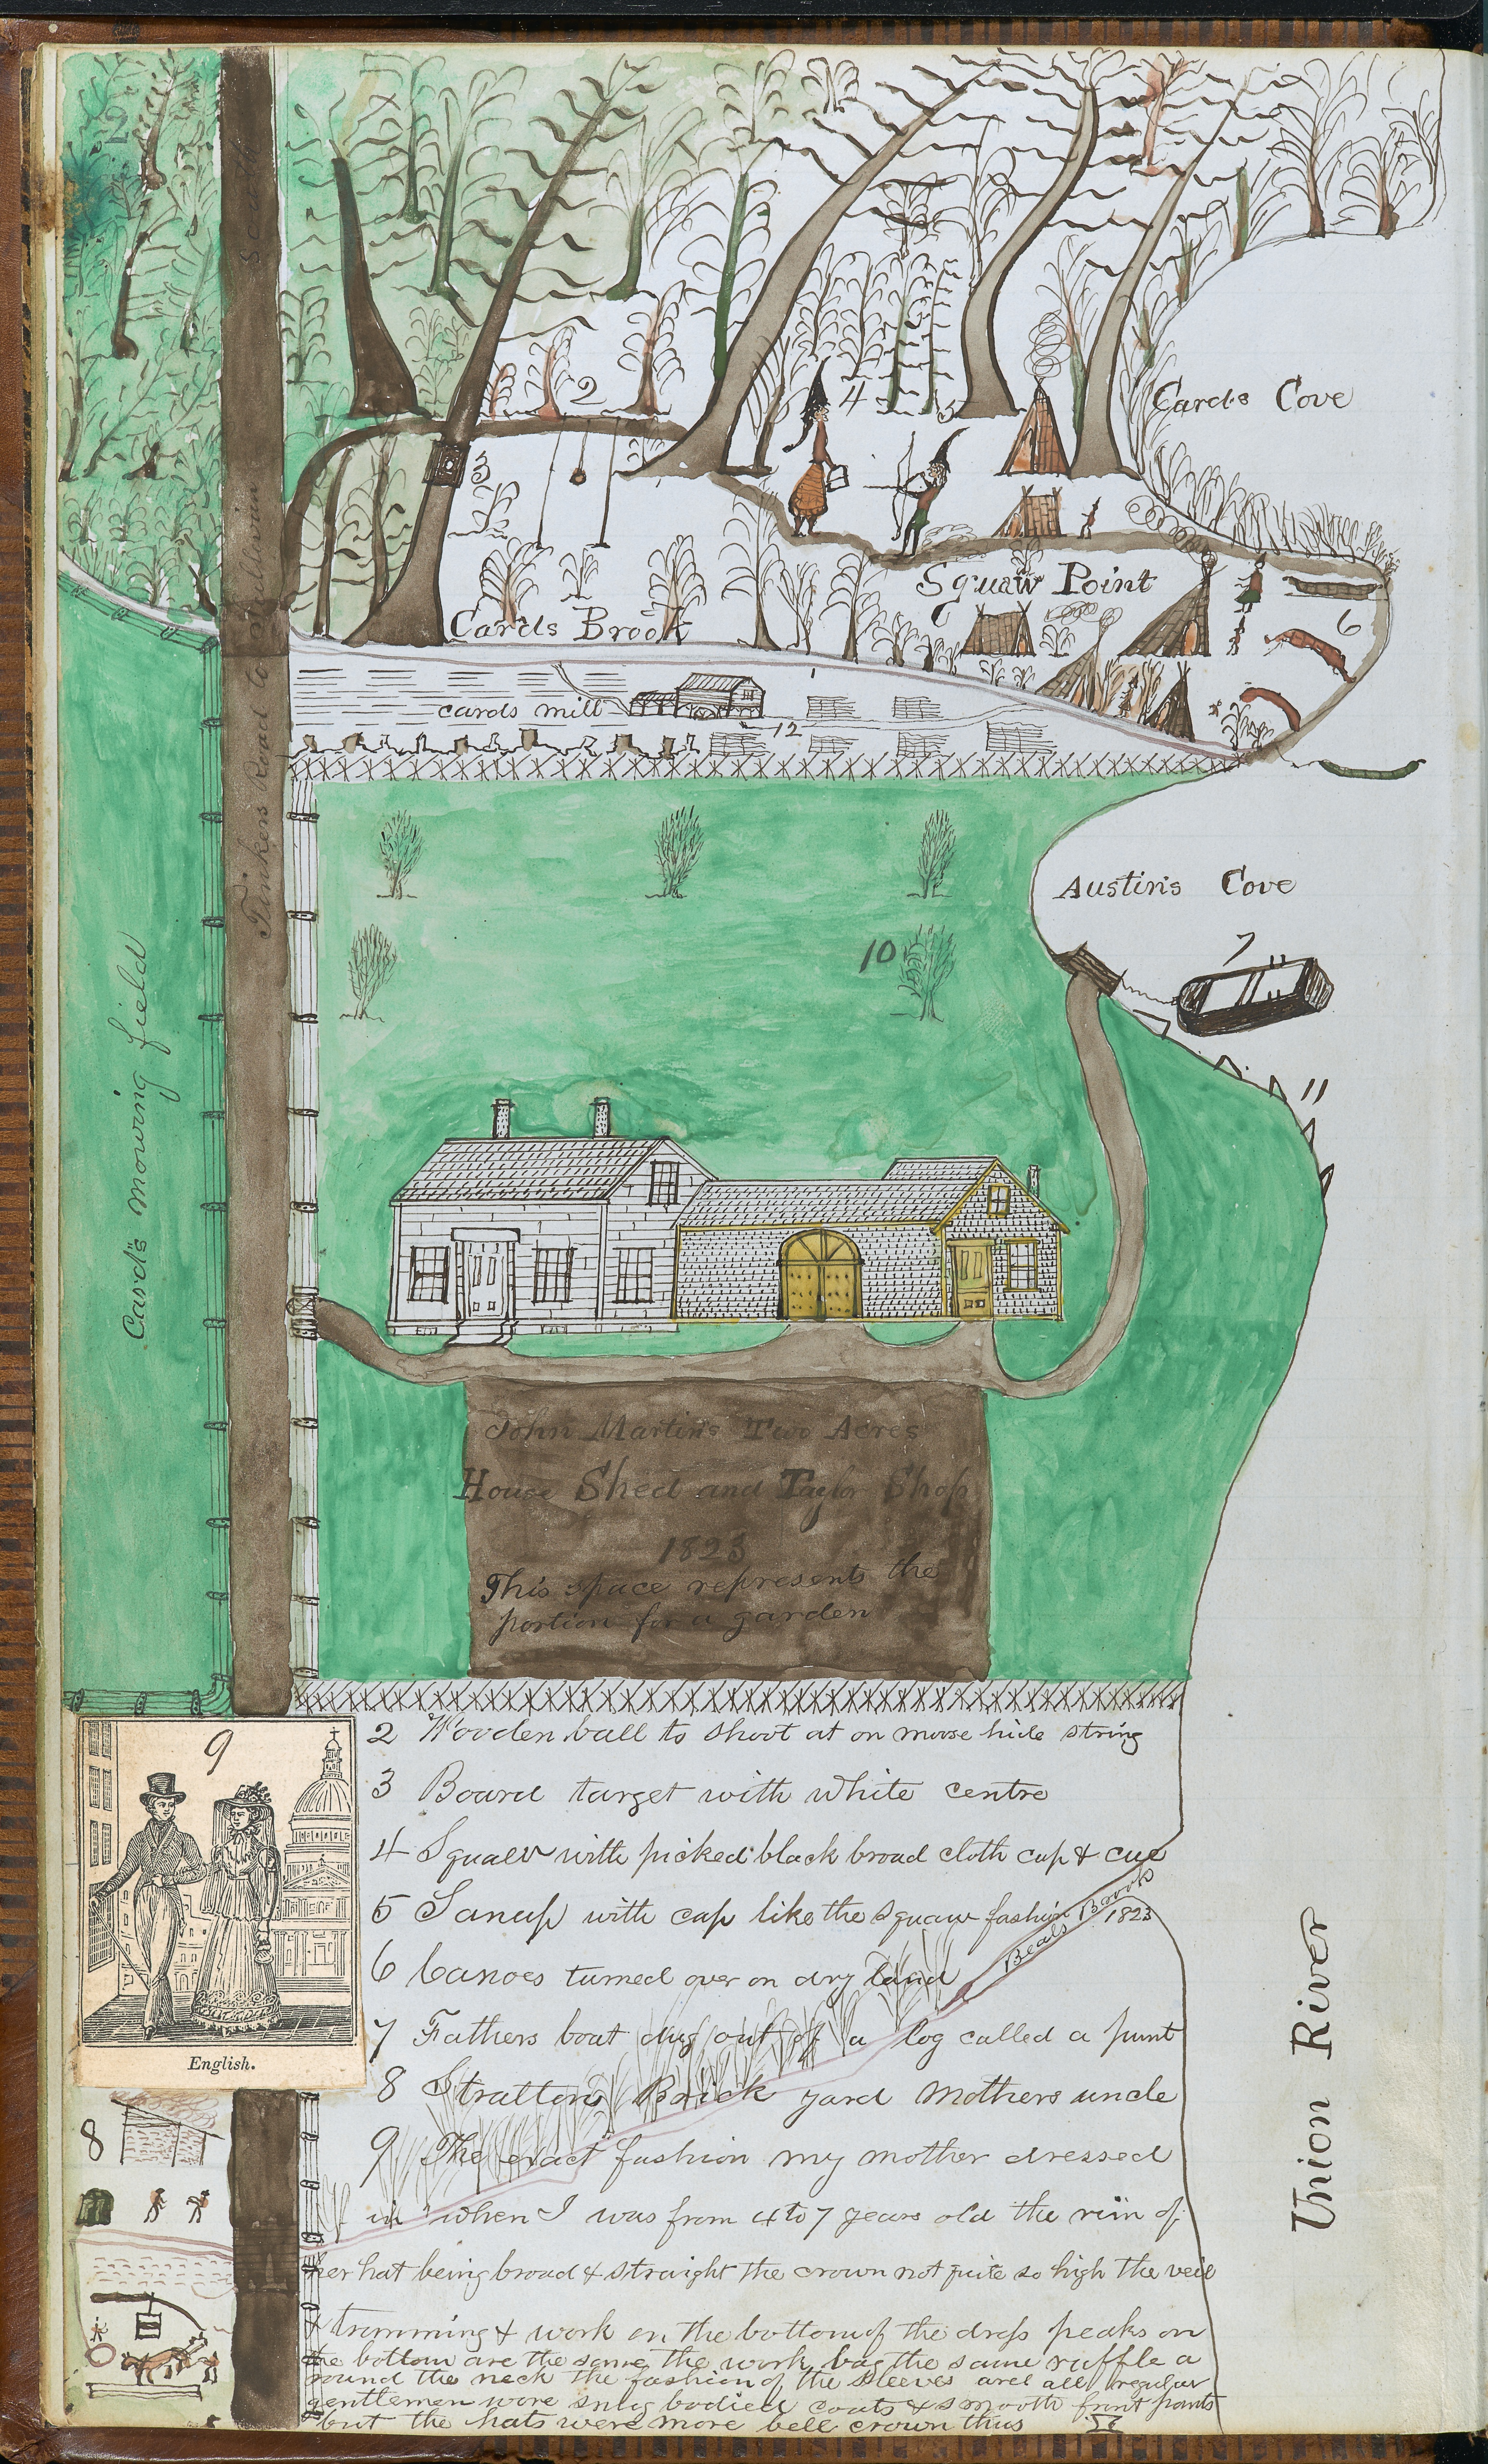 12
2
3
4
5
Cards Cove
Squaw Point
6
Cards Brook
cards mill
12
1
Tinkers Road to Sullivan
Card's mowing field
Austin's Cove
7
10
11
John Martin's Two Acres
House Shed and Taylor Shop
1823
This space represents the
portion for a garden
9
English.
2 Wooden ball to shoot at on moose hide string
3 Board target with white centre
4 Squaw with picked black broad cloth cap & cue
5 Sanup with cap like the squaw fashion 1823
Beals Brook
6 Canoes turned over on dry land
7 Fathers boat dug out of a log called a punt
8 Strattons Brick yard Mothers uncle
9 The exact fashion my mother dressed
in when I was from 4 to 7 years old the rim of
her hat being broad & straight the crown not quite so high the veil
& trimming & work on the bottom of the dress peaks on
the bottom are the same the work bag the same ruffle a
round the neck the fashion of the sleeves and all regular
gentlemen wore snug bodied coats & smooth front pants
but the hats were more bell crown thus
8
Union River